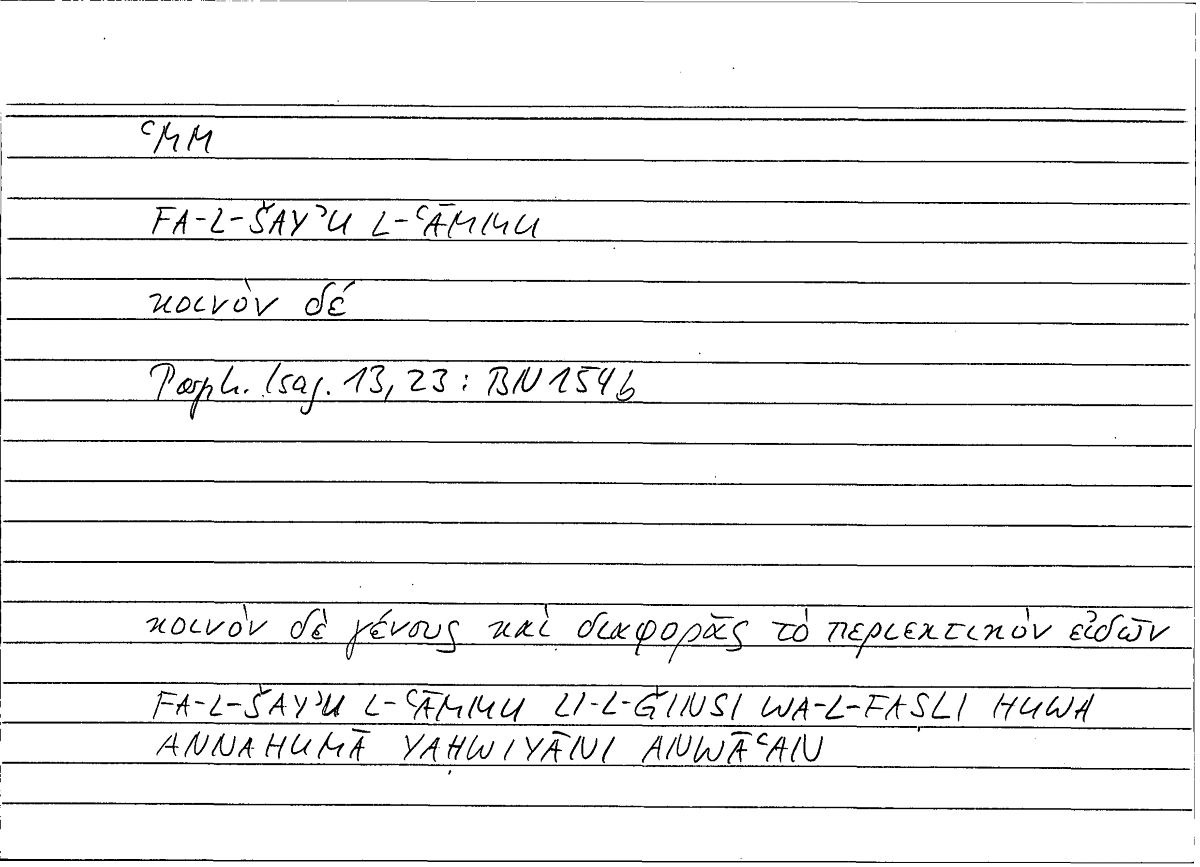 ʿMM
FA-L-ŠAYʾU L-ʿĀMMU
κοινὸν δέ
Porph. Isag. 13, 23 : BN 154b
κοινὸν δὲ γένους καὶ διαφορᾶς τὸ περιεκτικὸν εἰδῶν
FA-L-ŠAYʾU L-ʿĀMMU LI-L-ǦINSI WA-L-FAṢLI HUWA
ANNAHUMĀ YAḤWIYĀNI ANWĀʿAN